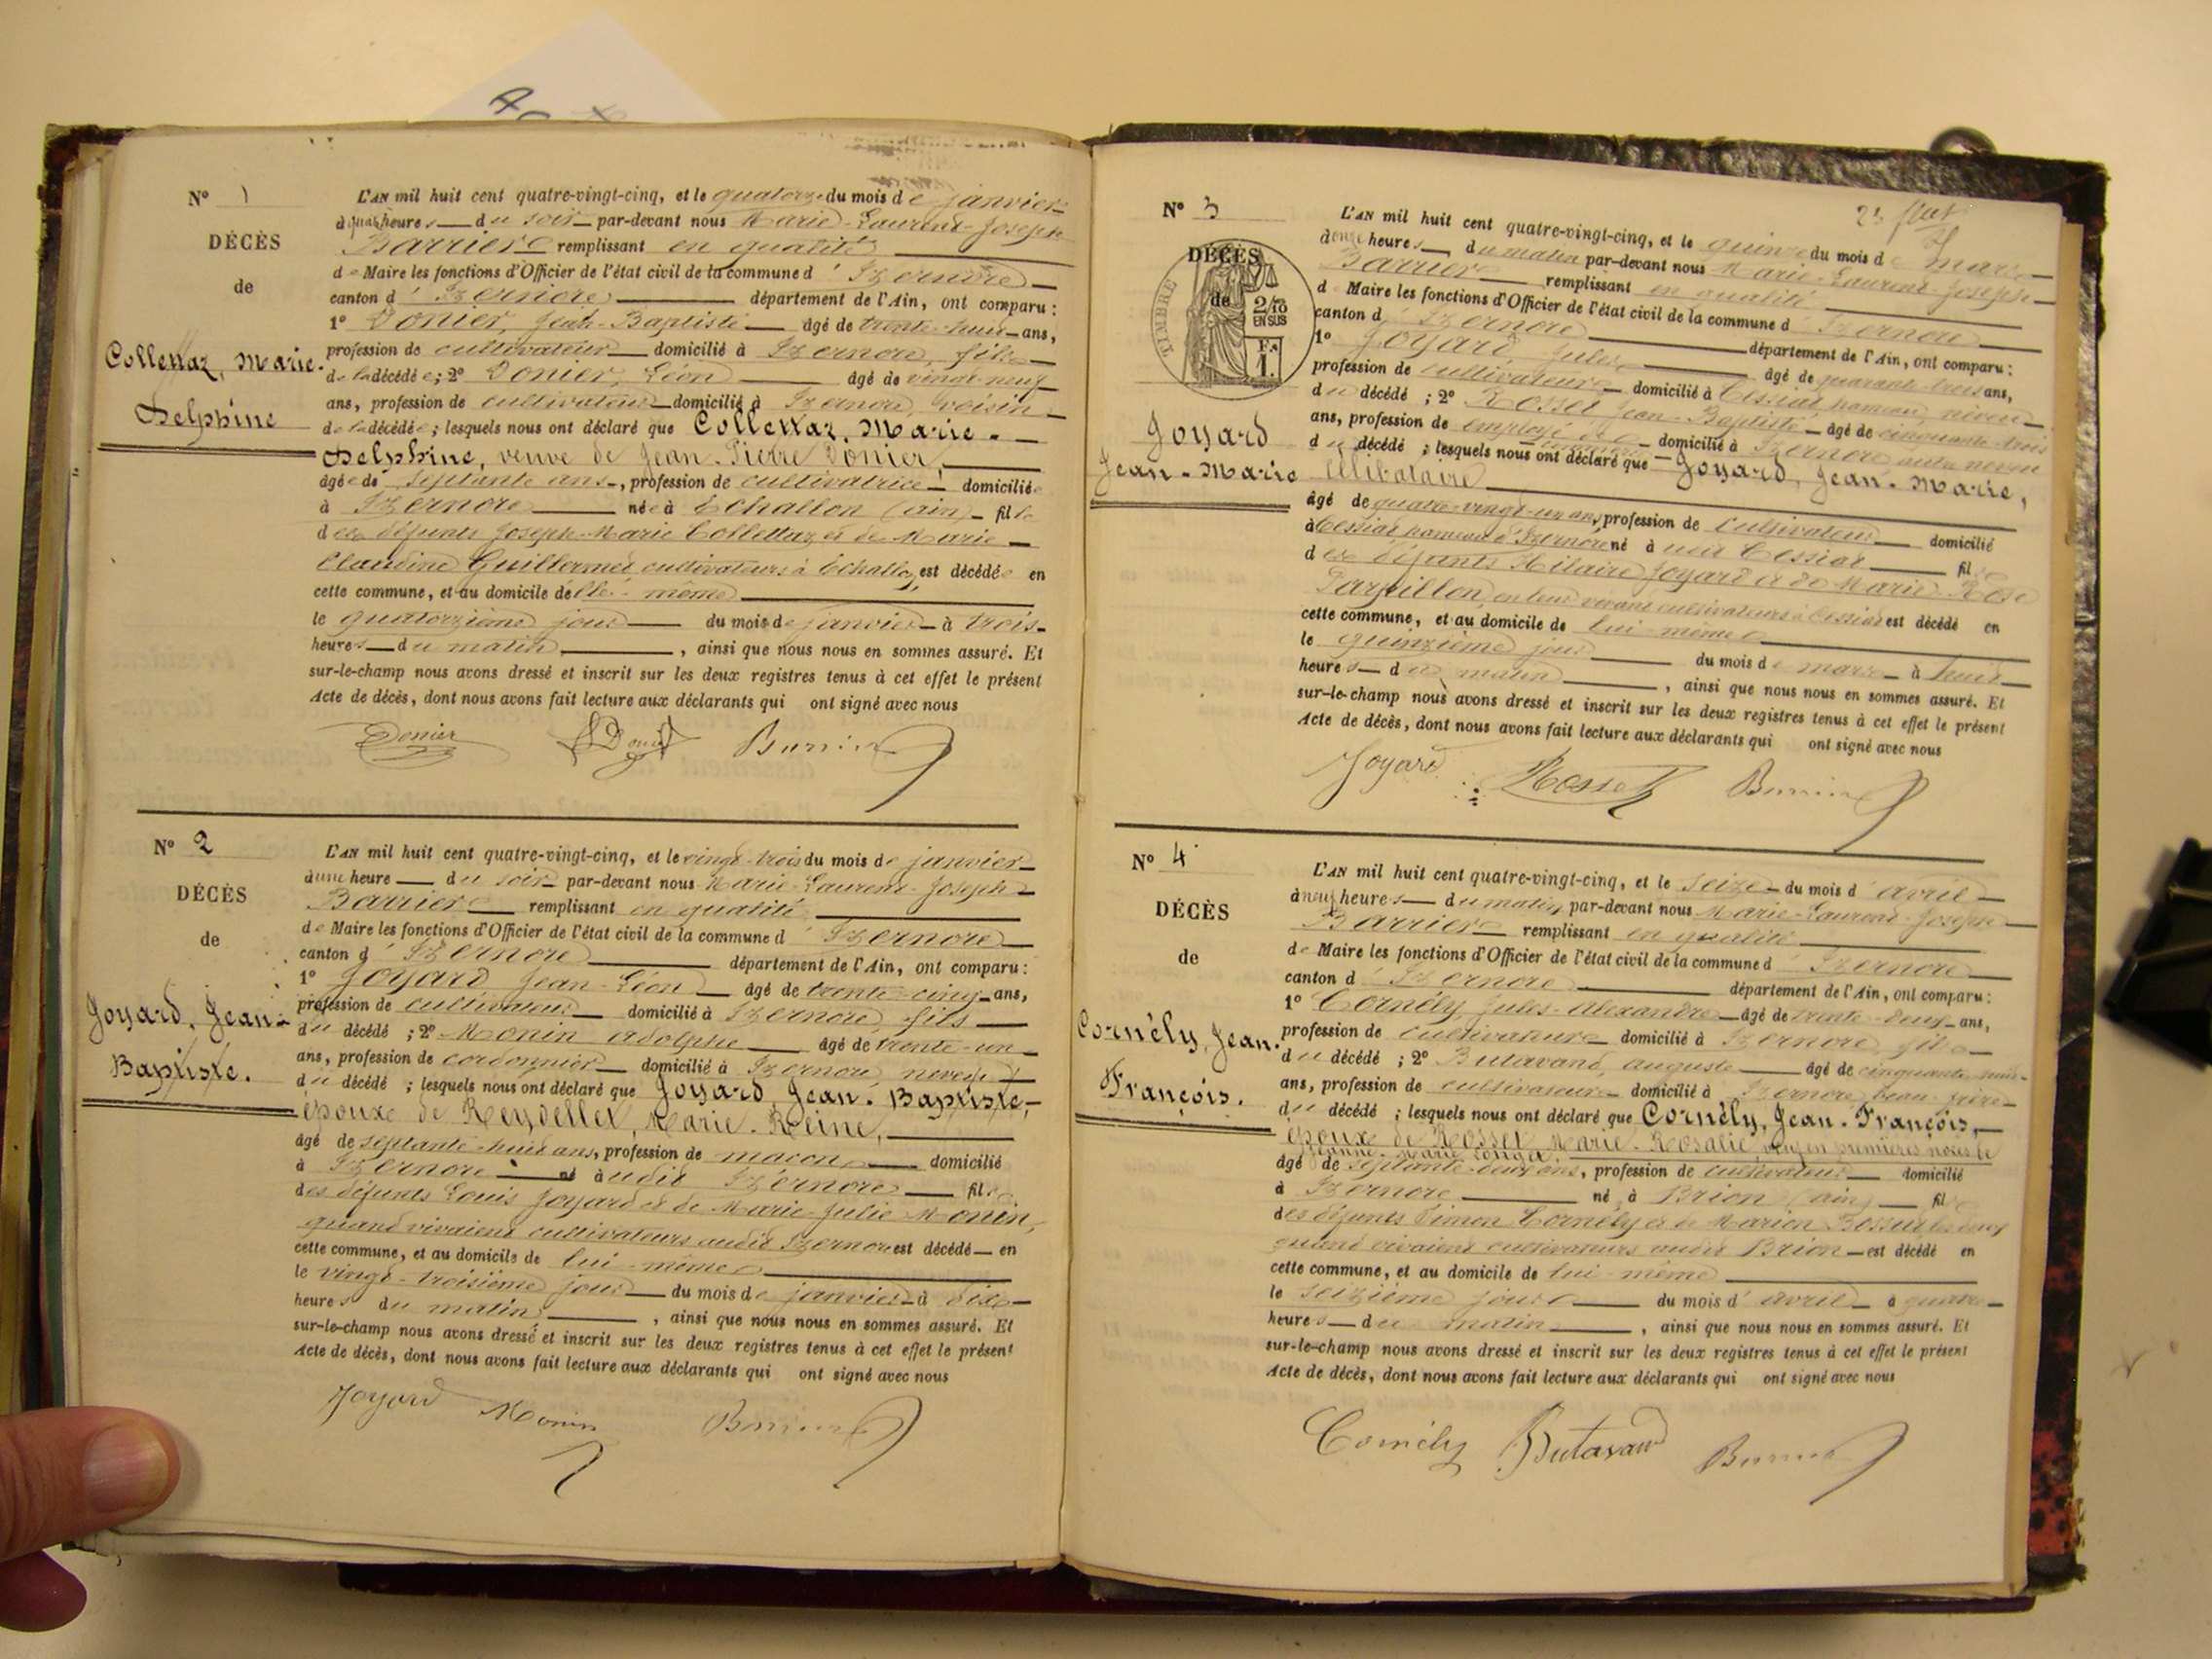 Nº 1
DÉCÈS
de
Collettaz, Marie-
Delphine
L'AN mil huit cent quatre-vingt-cinq, et le quatorze du mois de janvier
à quatre heures du soir par-devant nous Marie-Laurent-Joseph
Barrier remplissant en qualité
de Maire les fonctions d'Officier de l'état civil de la commune d' Izernore
canton d' Izernore département de l'Ain, ont comparu :
1º Donier, Jean-Baptiste âgé de trente-huit ans,
profession de cultivateur domicilié à Izernore, fils
de la décédée ; 2º Donier, Léon âgé de vingt-neuf
ans, profession de cultivateur domicilié à Izernore, voisin
de la décédée ; lesquels nous ont déclaré que Collettaz, Marie-
Delphine, veuve de Jean-Pierre Donier,
âgée de septante ans, profession de cultivatrice domiciliée
à Izernore née à Echallon (ain) fille
des défunts Joseph-Marie Collettaz et de Marie
Claudine Guillermet cultivateurs à Echallon, est décédée en
cette commune, et au domicile d'elle-même
le quatorzième jour du mois de janvier à trois
heures du matin, ainsi que nous nous en sommes assuré. Et
sur-le-champ nous avons dressé et inscrit sur les deux registres tenus à cet effet le présent
Acte de décès, dont nous avons fait lecture aux déclarants qui ont signé avec nous
Donier Donier Barrier
Nº 2
DÉCÈS
de
Joyard, Jean-
Baptiste.
L'AN mil huit cent quatre-vingt-cinq, et le vingt-trois du mois de janvier
à une heure du soir par-devant nous Marie-Laurent-Joseph
Barrier remplissant en qualité
de Maire les fonctions d'Officier de l'état civil de la commune d' Izernore
canton d' Izernore département de l'Ain, ont comparu :
1º Joyard Jean-Léon âgé de trente-cinq ans,
profession de cultivateur domicilié à Izernore, fils
du décédé ; 2º Monin Adolphe âgé de trente-un
ans, profession de cordonnier domicilié à Izernore, neveu
du décédé ; lesquels nous ont déclaré que Joyard, Jean-Baptiste,
époux de Reydellet, Marie-Reine,
âgé de septante-huit ans, profession de maçon domicilié
à Izernore né audit Izernore fils
des défunts Louis Joyard et de Marie-Julie Monin,
quand vivaient cultivateurs audit Izernore est décédé en
cette commune, et au domicile de lui-même
le vingt-troisième jour du mois de janvier à dix
heures du matin, ainsi que nous nous en sommes assuré. Et
sur-le-champ nous avons dressé et inscrit sur les deux registres tenus à cet effet le présent
Acte de décès, dont nous avons fait lecture aux déclarants qui ont signé avec nous
Joyard Monin Barrier
Nº 3
DÉCÈS
de
TIMBRE
2/10
EN SUS
F.
1.
Joyard
Jean-Marie
L'AN mil huit cent quatre-vingt-cinq, et le quinze du mois de mars
heures du matin par-devant nous Marie-Laurent-Joseph
Barrier remplissant en qualité
de Maire les fonctions d'Officier de l'état civil de la commune d' Izernore
canton d' Izernore département de l'Ain, ont comparu :
1º Joyard, Jules âgé de quarante-trois ans,
profession de cultivateur domicilié à Cessiat hameau, neveu
du décédé ; 2º Rosset Jean-Baptiste âgé de cinquante-trois
ans, profession de employé domicilié à Izernore, autre neveu
du décédé ; lesquels nous ont déclaré que Joyard, Jean-Marie,
célibataire
âgé de quatre-vingt-un ans, profession de cultivateur domicilié
à Cessiat, hameau d'Izernore né à udit Cessiat fils
des défunts Hilaire Joyard et de Marie-Rose
en leur vivant cultivateurs à Cessiat est décédé en
cette commune, et au domicile de lui-même
le quinzième jour du mois de mars à
heures du matin, ainsi que nous nous en sommes assuré. Et
sur-le-champ nous avons dressé et inscrit sur les deux registres tenus à cet effet le présent
Acte de décès, dont nous avons fait lecture aux déclarants qui ont signé avec nous
Joyard Rosset Barrier
Nº 4
DÉCÈS
de
Cornély, Jean-
François.
L'AN mil huit cent quatre-vingt-cinq, et le seize du mois d' avril
à neuf heures du matin, par-devant nous Marie-Laurent-Joseph
Barrier remplissant en qualité
de Maire les fonctions d'Officier de l'état civil de la commune d' Izernore
canton d' Izernore département de l'Ain, ont comparu :
1º Cornély, Jules-Alexandre âgé de trente-deux ans,
profession de cultivateur domicilié à Izernore, fils
du décédé ; 2º Butavand, Auguste âgé de cinquante-huit
ans, profession de cultivateur domicilié à Izernore, beau-frère
du décédé ; lesquels nous ont déclaré que Cornély, Jean-François,
époux de Rosset Marie-Rosalie, en premières noces de
Jeanne-Marie
âgé de septante-deux ans, profession de cultivateur domicilié
à Izernore né à Brion (ain) fils
des défunts Simon Cornély et de Marion
quand vivaient cultivateurs audit Brion est décédé en
cette commune, et au domicile de lui-même
le seizième jour du mois d' avril à quatre
heures du matin, ainsi que nous nous en sommes assuré. Et
sur-le-champ nous avons dressé et inscrit sur les deux registres tenus à cet effet le présent
Acte de décès, dont nous avons fait lecture aux déclarants qui ont signé avec nous
Cornély Butavand Barrier